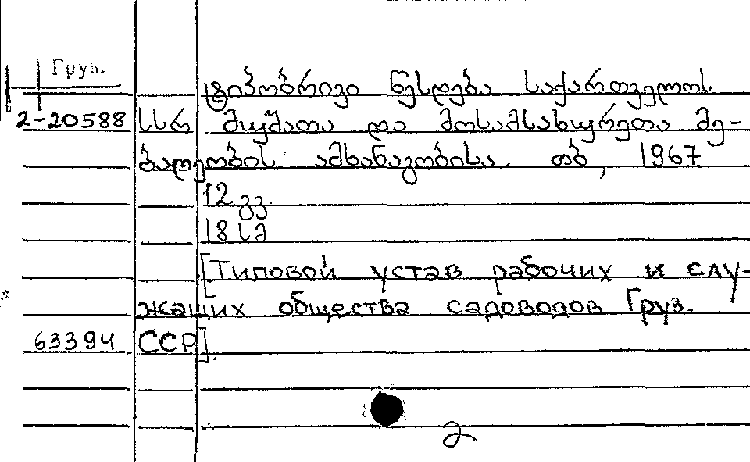 Груз.
ტიპობრივი წესდება საქართველოს
2-20588 სსრ მუშათა და მოსამსახურეთა მე-
ბაღეობის ამხანაგობისა. თბ, 1967
12 გვ.
18 სმ
[Типовой устав рабочих и слу-
жащих общества садоводов Груз.
63394 ССР].